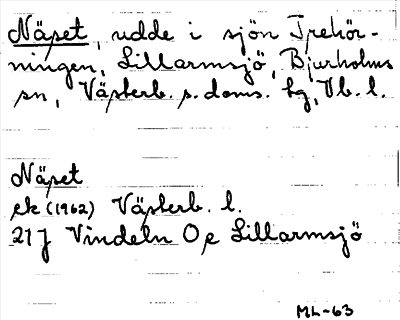 Näset, udde i sjön Trehör-
ningen, Lillarmsjö, Bjurholms
sn, Västerb. s. doms. hg, Vb. l.
Näset
ek (1962) Västerb. l.
21J Vindeln O,e Lillarmsjö
ML-63